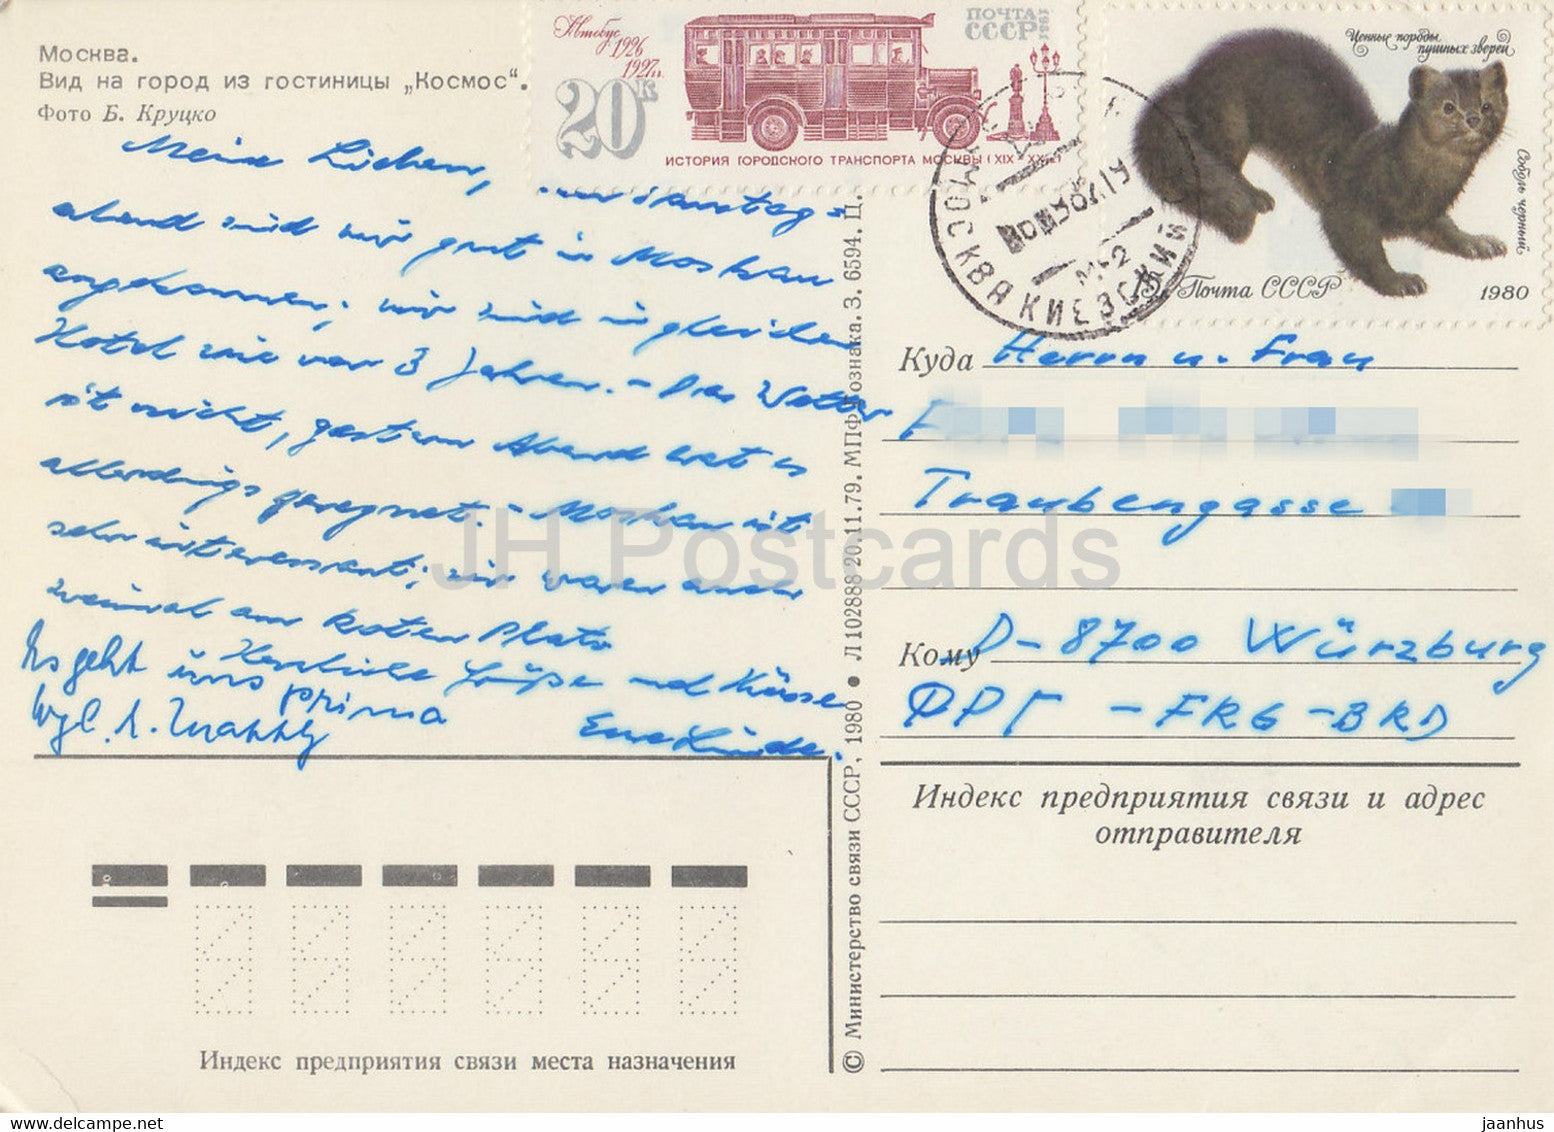 Москва.
Вид на город из гостиницы „Космос“.
Фото Б. Круцко
Автобус
1926
1927гг.
20к
ПОЧТА
СССР
1981
ИСТОРИЯ ГОРОДСКОГО ТРАНСПОРТА МОСКВЫ (XIX - XX
Ценные породы
пушных зверей
Соболь черный
Почта СССР
1980
МОСКВА КИЕВСКИЙ
М-2
Meine Lieben,
abend sind wir gut in Moskau
angekommen; wir sind im gleichen
Hotel wie vor 3 Jahren. – Das Wetter
ist nicht, gestern Abend hat es
allerdings geregnet. – Moskau ist
sehr interessant; wir waren auch
zweimal am Roten Platz
Herzliche Grüße und Küsse
Es geht uns prima
Куда Herrn u. Frau
Traubengasse
Кому D-8700 Würzburg
ФРГ – FRG – BRD
Индекс предприятия связи и адрес
отправителя
Индекс предприятия связи места назначения
© Министерство связи СССР, 1980 • Л 102888 20.11.79. МПФ Гознака. З. 6594. Ц.
JH Postcards
www.delcampe.net
jaanhus